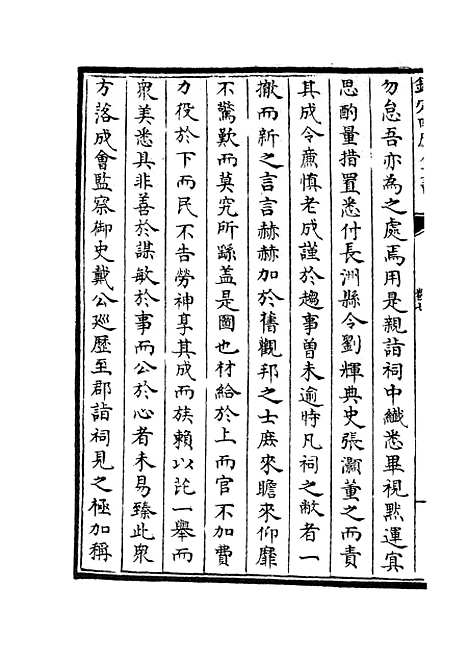 勿怠吾亦為之處焉用是親詣祠中纎悉畢視黙運㝠
思酌量措置悉付長洲縣令劉輝典史張灝董之而責
其成令亷慎老成謹於趨事曽未逾時凡祠之敝者一
撤而新之言言赫赫加於舊觀邦之士庶來瞻來仰靡
不驚歎而莫究所繇盖是圖也材給於上而官不加費
力役於下而民不告勞神享其成而族賴以託一舉而
衆美悉具非善於謀敏於事而公於心者未易臻此衆
方落成會監察御史戴公廵歴至郡詣祠見之極加稱